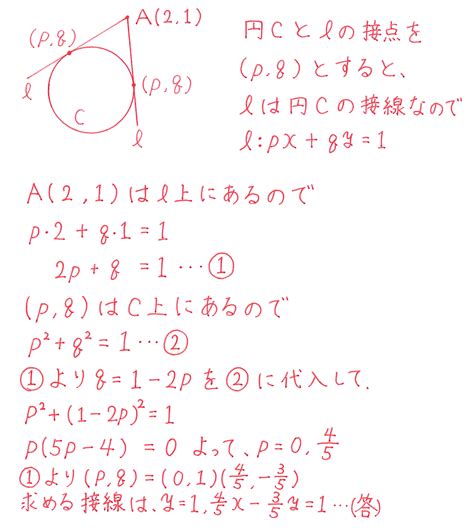 A(2,1)
(p,q)
(p,q)
l
C
l
円Cとlの接点を
(p,q)とすると、
lは円Cの接線なので
l:px+qy=1
A(2,1)はl上にあるので
p・2+q・1=1
2p+q=1…①
(p,q)はC上にあるので
p²+q²=1…②
①よりq=1-2pを②に代入して.
p²+(1-2p)²=1
p(5p-4)=0 よって、p=0,4/5
①より(p,q)=(0,1)(4/5,-3/5)
求める接線は、y=1,4/5x-3/5y=1…(答)